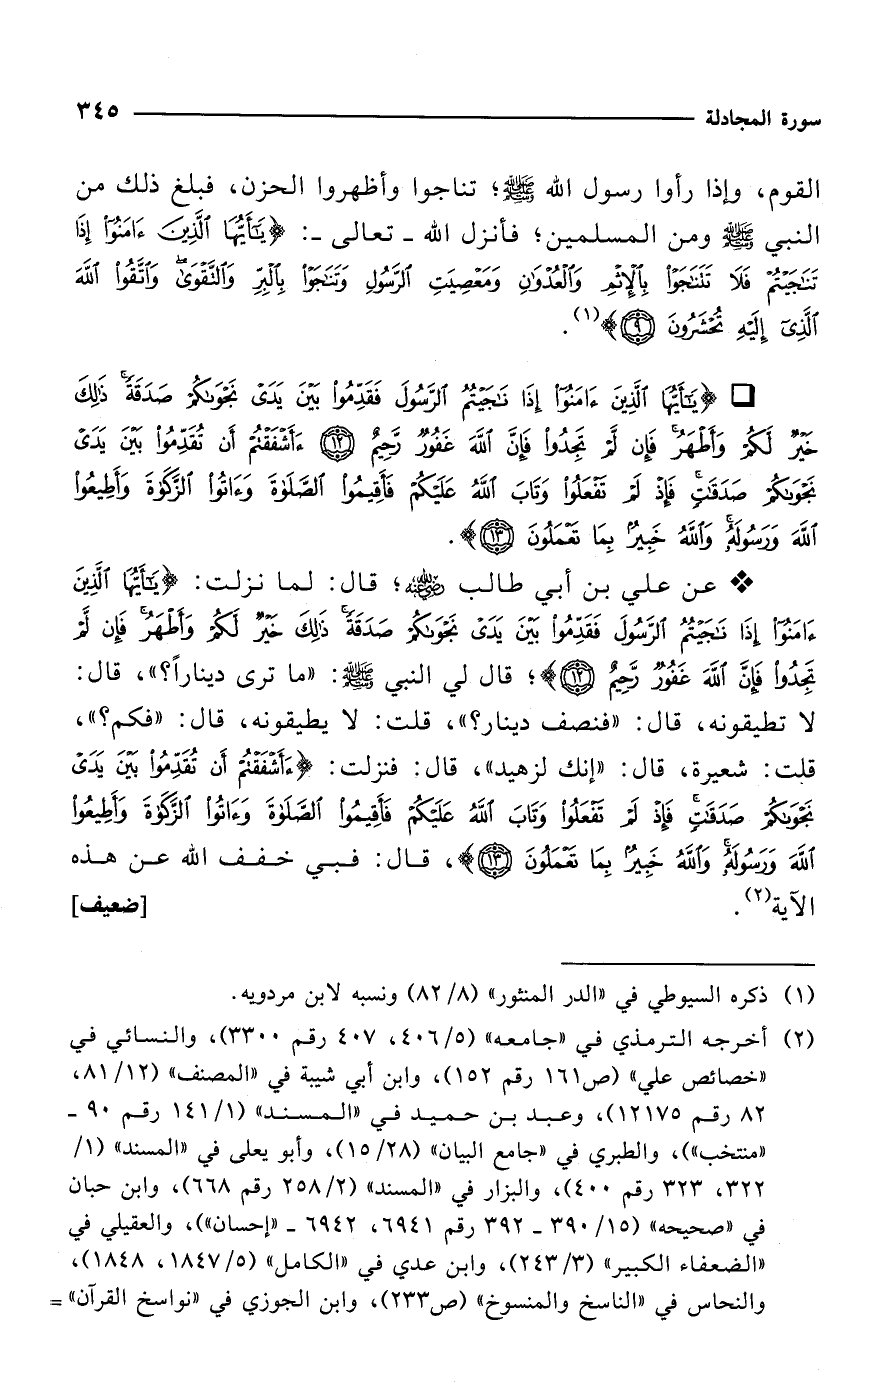 سورة المجادلة ٣٤٥
القوم، وإذا رأوا رسول الله ﷺ؛ تناجوا وأظهروا الحزن، فبلغ ذلك من
النبي ﷺ ومن المسلمين؛ فأنزل الله ـ تعالى ـ: ﴿يَٰٓأَيُّهَا ٱلَّذِينَ ءَامَنُوٓا۟ إِذَا
تَنَٰجَيْتُمْ فَلَا تَتَنَٰجَوْا۟ بِٱلْإِثْمِ وَٱلْعُدْوَٰنِ وَمَعْصِيَتِ ٱلرَّسُولِ وَتَنَٰجَوْا۟ بِٱلْبِرِّ وَٱلتَّقْوَىٰ ۖ وَٱتَّقُوا۟ ٱللَّهَ
ٱلَّذِىٓ إِلَيْهِ تُحْشَرُونَ ٩﴾(١).
❏ ﴿يَٰٓأَيُّهَا ٱلَّذِينَ ءَامَنُوٓا۟ إِذَا نَٰجَيْتُمُ ٱلرَّسُولَ فَقَدِّمُوا۟ بَيْنَ يَدَىْ نَجْوَىٰكُمْ صَدَقَةً ۚ ذَٰلِكَ
خَيْرٌ لَّكُمْ وَأَطْهَرُ ۚ فَإِن لَّمْ تَجِدُوا۟ فَإِنَّ ٱللَّهَ غَفُورٌ رَّحِيمٌ ١٢ ءَأَشْفَقْتُمْ أَن تُقَدِّمُوا۟ بَيْنَ يَدَىْ
نَجْوَىٰكُمْ صَدَقَٰتٍ ۚ فَإِذْ لَمْ تَفْعَلُوا۟ وَتَابَ ٱللَّهُ عَلَيْكُمْ فَأَقِيمُوا۟ ٱلصَّلَوٰةَ وَءَاتُوا۟ ٱلزَّكَوٰةَ وَأَطِيعُوا۟
ٱللَّهَ وَرَسُولَهُۥ ۚ وَٱللَّهُ خَبِيرٌۢ بِمَا تَعْمَلُونَ ١٣﴾.
❖ عن علي بن أبي طالب رضي الله عنه؛ قال: لما نزلت: ﴿يَٰٓأَيُّهَا ٱلَّذِينَ
ءَامَنُوٓا۟ إِذَا نَٰجَيْتُمُ ٱلرَّسُولَ فَقَدِّمُوا۟ بَيْنَ يَدَىْ نَجْوَىٰكُمْ صَدَقَةً ۚ ذَٰلِكَ خَيْرٌ لَّكُمْ وَأَطْهَرُ ۚ فَإِن لَّمْ
تَجِدُوا۟ فَإِنَّ ٱللَّهَ غَفُورٌ رَّحِيمٌ ١٢﴾؛ قال لي النبي ﷺ: «ما ترى ديناراً؟»، قال:
لا تطيقونه، قال: «فنصف دينار؟»، قلت: لا يطيقونه، قال: «فكم؟»،
قلت: شعيرة، قال: «إنك لزهيد»، قال: فنزلت: ﴿ءَأَشْفَقْتُمْ أَن تُقَدِّمُوا۟ بَيْنَ يَدَىْ
نَجْوَىٰكُمْ صَدَقَٰتٍ ۚ فَإِذْ لَمْ تَفْعَلُوا۟ وَتَابَ ٱللَّهُ عَلَيْكُمْ فَأَقِيمُوا۟ ٱلصَّلَوٰةَ وَءَاتُوا۟ ٱلزَّكَوٰةَ وَأَطِيعُوا۟
ٱللَّهَ وَرَسُولَهُۥ ۚ وَٱللَّهُ خَبِيرٌۢ بِمَا تَعْمَلُونَ ١٣﴾، قال: فبي خفف الله عن هذه
الآية(٢). [ضعيف]
(١) ذكره السيوطي في «الدر المنثور» (٨/ ٨٢) ونسبه لابن مردويه.
(٢) أخرجه الترمذي في «جامعه» (٥/ ٤٠٦، ٤٠٧ رقم ٣٣٠٠)، والنسائي في
«خصائص علي» (ص١٦١ رقم ١٥٢)، وابن أبي شيبة في «المصنف» (١٢/ ٨١،
٨٢ رقم ١٢١٧٥)، وعبد بن حميد في «المسند» (١/ ١٤١ رقم ٩٠ ـ
«منتخب»)، والطبري في «جامع البيان» (٢٨/ ١٥)، وأبو يعلى في «المسند» (١/
٣٢٢، ٣٢٣ رقم ٤٠٠)، والبزار في «المسند» (٢/ ٢٥٨ رقم ٦٦٨)، وابن حبان
في «صحيحه» (١٥/ ٣٩٠ ـ ٣٩٢ رقم ٦٩٤١، ٦٩٤٢ ـ «إحسان»)، والعقيلي في
«الضعفاء الكبير» (٣/ ٢٤٣)، وابن عدي في «الكامل» (٥/ ١٨٤٧، ١٨٤٨)،
والنحاس في «الناسخ والمنسوخ» (ص٢٣٣)، وابن الجوزي في «نواسخ القرآن» =